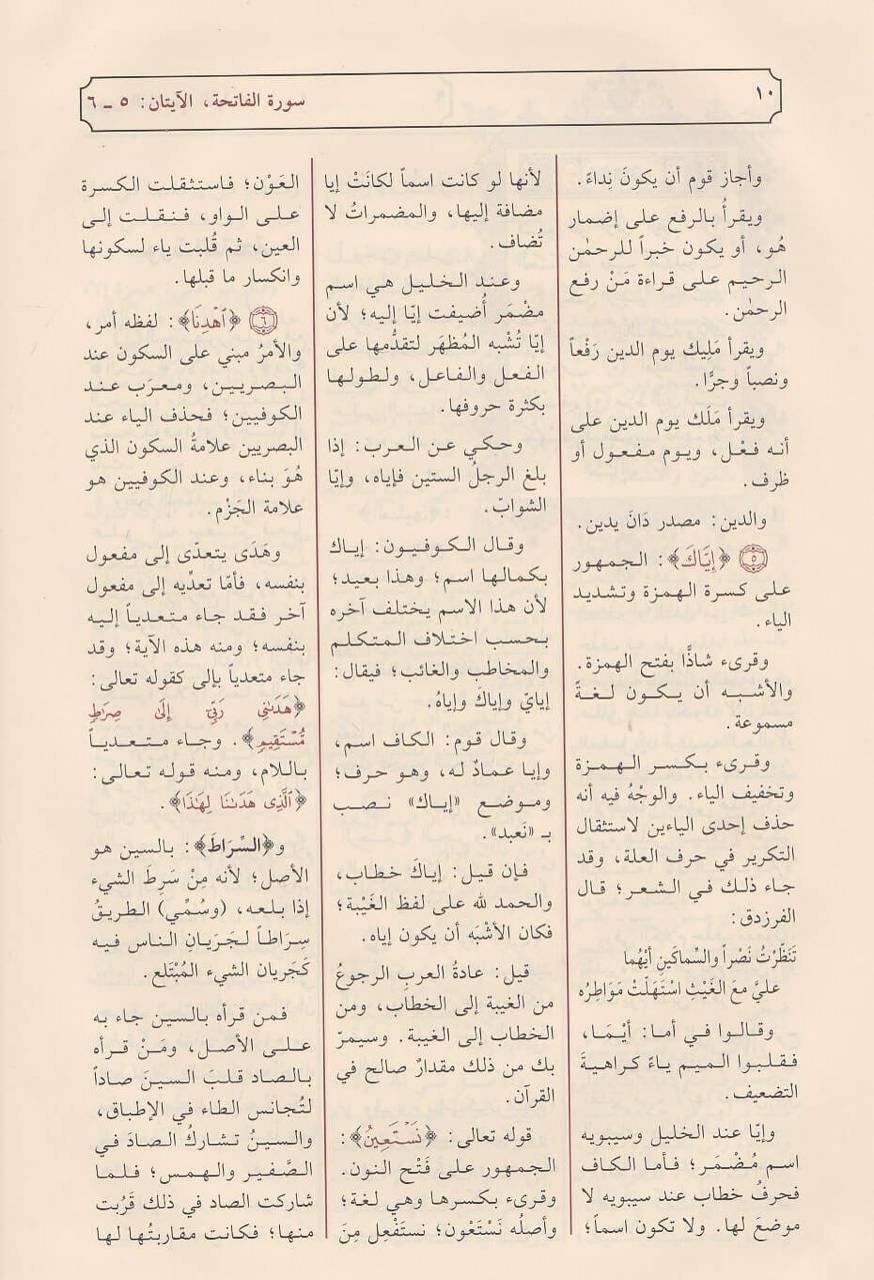 ١٠
سورة الفاتحة، الآيتان: ٥ ـ ٦
وأجاز قوم أن يكونَ نِداءً.
ويقرأُ بالرفع على إضمار
هُو، أو يكون خبراً للرحمٰن
الرحيم على قراءة مَنْ رفع
الرحمٰن.
ويقرأ مَلِيك يوم الدين رَفْعاً
ونصباً وجرًّا.
ويقرأ مَلَك يوم الدين على
أنه فعْل، ويوم مفعول أو
ظرف.
والدين: مصدر دَانَ يدين.
٥ ﴿إِيَّاكَ﴾: الجمهور
على كسرة الهمزة وتشديد
الياء.
وقرىء شاذًّا بفتح الهمزة.
والأشبه أن يكون لغةً
مسموعة.
وقرىء بكسر الهمزة
وتخفيف الياء. والوجْهُ فيه أنه
حذف إحدى الياءين لاستثقال
التكرير في حرف العلة، وقد
جاء ذلك في الشعر؛ قال
الفرزدق:
تَنَظَّرْتُ نَصْراً والسِّماكَينِ أَيْهُما
عليَّ معَ الغَيْثِ اسْتَهَلَّتْ مَوَاطِرُه
وقالوا في أما: أَيْمَا،
فقلبوا الميم ياءً كراهيةَ
التضعيف.
وإيَّا عند الخليل وسيبويه
اسم مُضْمَر؛ فأما الكاف
فحرفُ خطاب عند سيبويه لا
موضعَ لها. ولا تكون اسماً؛
لأنها لو كانت اسماً لكانَتْ إيا
مضافة إليها، والمضمراتُ لا
تُضاف.
وعند الخليل هي اسم
مضْمَر أُضيفت إيَّا إليه؛ لأن
إيَّا تُشْبه المُظهَر لتقدُّمها على
الفعل والفاعل، ولطولها
بكثرة حروفها.
وحكي عن العرب: إذا
بلغ الرجلُ الستين فإياه، وإيَّا
الشوابّ.
وقال الكوفيون: إياك
بكمالها اسم؛ وهذا بعيد؛
لأن هذا الاسم يختلف آخره
بحسب اختلاف المتكلم
والمخاطب والغائب؛ فيقال:
إيايَ وإياكَ وإياهُ.
وقال قوم: الكاف اسم،
وإيا عمادٌ له، وهو حرف؛
وموضع «إياك» نصب
بـ «نَعبد».
فإن قيل: إياكَ خطاب،
والحمد لله على لفظ الغَيْبة؛
فكان الأشْبَه أن يكون إياه.
قيل: عادةُ العربِ الرجوعُ
من الغيبة إلى الخطاب، ومن
الخطاب إلى الغيبة. وسيمرّ
بك من ذلك مقدارٌ صالح في
القرآن.
قوله تعالى: ﴿نَسْتَعِينُ﴾:
الجمهور على فَتْح النون.
وقرىء بكسرها وهي لغة؛
وأصلُه نَسْتَعْون؛ نستَفْعِل مِنَ
العَوْن؛ فاستثقلت الكسرة
على الواو، فنقلت إلى
العين، ثم قُلبت ياء لسكونها
وانكسار ما قبلها.
٦ ﴿ٱهْدِنَا﴾: لفظه أمر،
والأمرُ مبني على السكون عند
البصريين، ومعرَب عند
الكوفيين؛ فحذف الياء عند
البصريين علامةُ السكون الذي
هُوَ بناء، وعند الكوفيين هو
علامة الجَزْم.
وهَدَى يتعدّى إلى مفعول
بنفسه، فأمّا تعدِّيه إلى مفعول
آخر فقد جاء متعدياً إليه
بنفسه؛ ومنه هذه الآية؛ وقد
جاء متعدياً بإلى كقوله تعالى:
﴿هَدَىٰنِي رَبِّيٓ إِلَىٰ صِرَٰطٍ
مُّسْتَقِيمٍ﴾. وجاء متعدياً
باللام، ومنه قوله تعالى:
﴿ٱلَّذِى هَدَىٰنَا لِهَٰذَا﴾.
و﴿السِّرَاطَ﴾: بالسين هو
الأصل؛ لأنه مِنْ سَرِطَ الشيء
إذا بلعه، (وسُمِّي) الطريقُ
سِرَاطاً لجَرَيانِ الناس فيه
كجَريان الشيء المُبْتَلع.
فمن قرأه بالسين جاء به
على الأصل، ومَنْ قرأه
بالصاد قلبَ السينَ صاداً
لتُجانس الطاء في الإطباق،
والسينُ تشاركُ الصادَ في
الصَّفير والهمس؛ فلما
شاركت الصاد في ذلك قَرُبت
منها؛ فكانت مقاربتُها لها